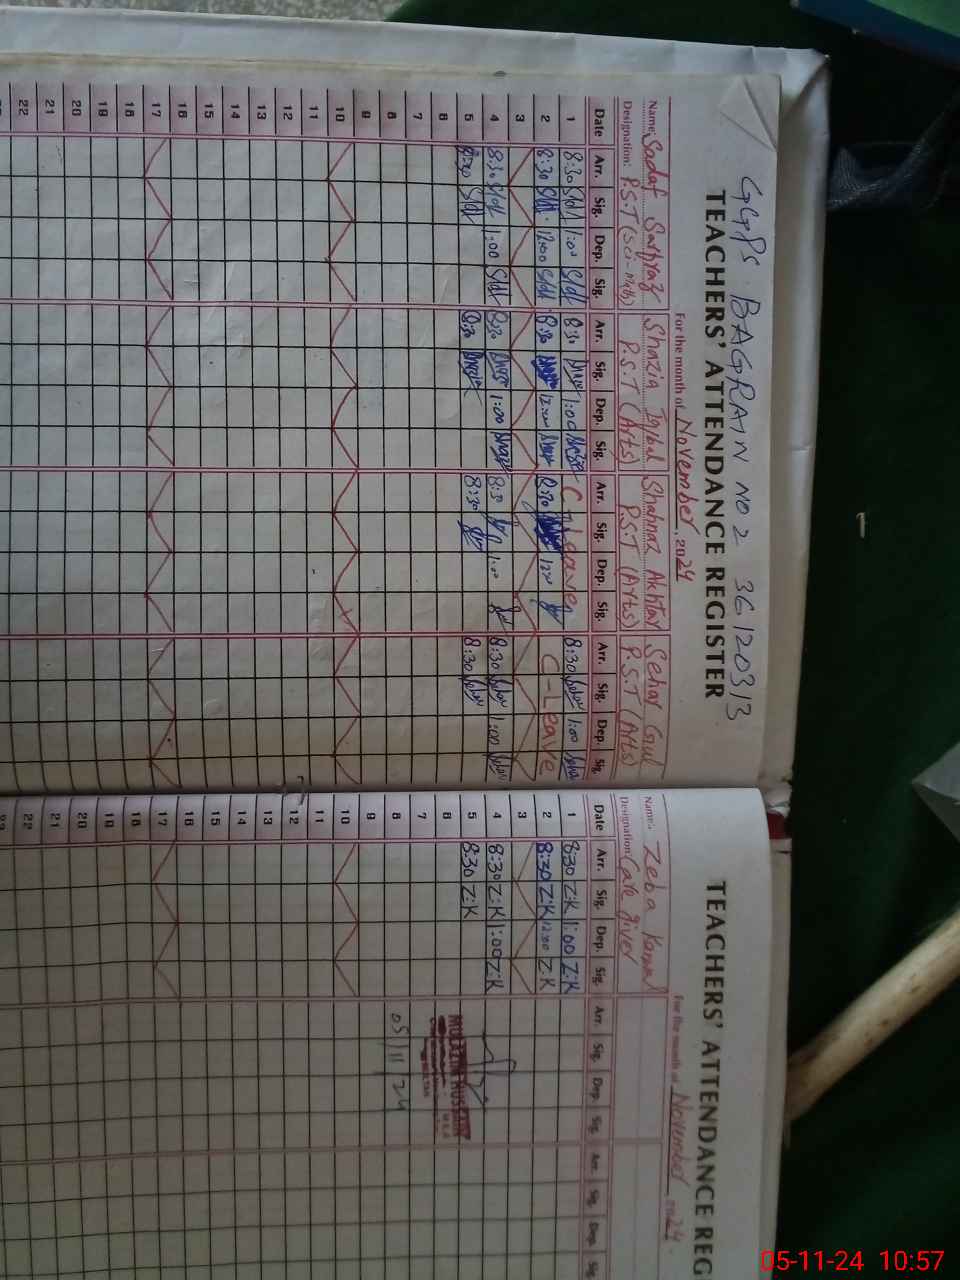 GGPS BAGRAIN NO 2 36120313
TEACHERS' ATTENDANCE REGISTER
For the month of November, 2024
Name: Sadaf Sarfraz Shazia Iqbal Shahnaz Akhtar Sehar Gul
Designation: P.S.T (Sci-Math) P.S.T (Arts) P.S.T (Arts) P.S.T (Arts)
Date Arr. Sig. Dep. Sig. Arr. Sig. Dep. Sig. Arr. Sig. Dep. Sig. Arr. Sig. Dep. Sig.
1 8:30 1:00 8:30 1:00 C-Leave 8:30 1:00
2 8:30 12:00 8:30 12:00 8:30 C-Leave
3
4 8:30 1:00 8:30 1:00 8:30 1:00 8:30 1:00
5 8:30 8:30 8:30 8:30
6
7
8
9
10
11
12
13
14
15
16
17
18
19
20
21
22
TEACHERS' ATTENDANCE REG
For the month of November, 2024.
Name:- Zeba Kanwal
Designation: Care giver
Date Arr. Sig. Dep. Sig. Arr. Sig. Dep. Sig. Arr. Sig. Dep. Sig.
1 8:30 Z.K 1:00 Z.K
2 8:30 Z.K 12:00 Z.K
3
4 8:30 Z.K 1:00 Z.K
5 8:30 Z.K
6
7
8
9
10
11
12
13
14
15
16
17
18
19
20
21
22
05/11/24
05-11-24 10:57